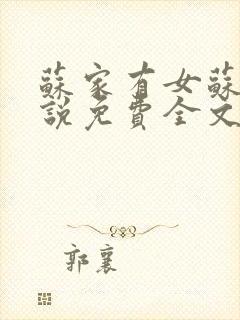 蘇家有女蘇
說免費全文
郭襄